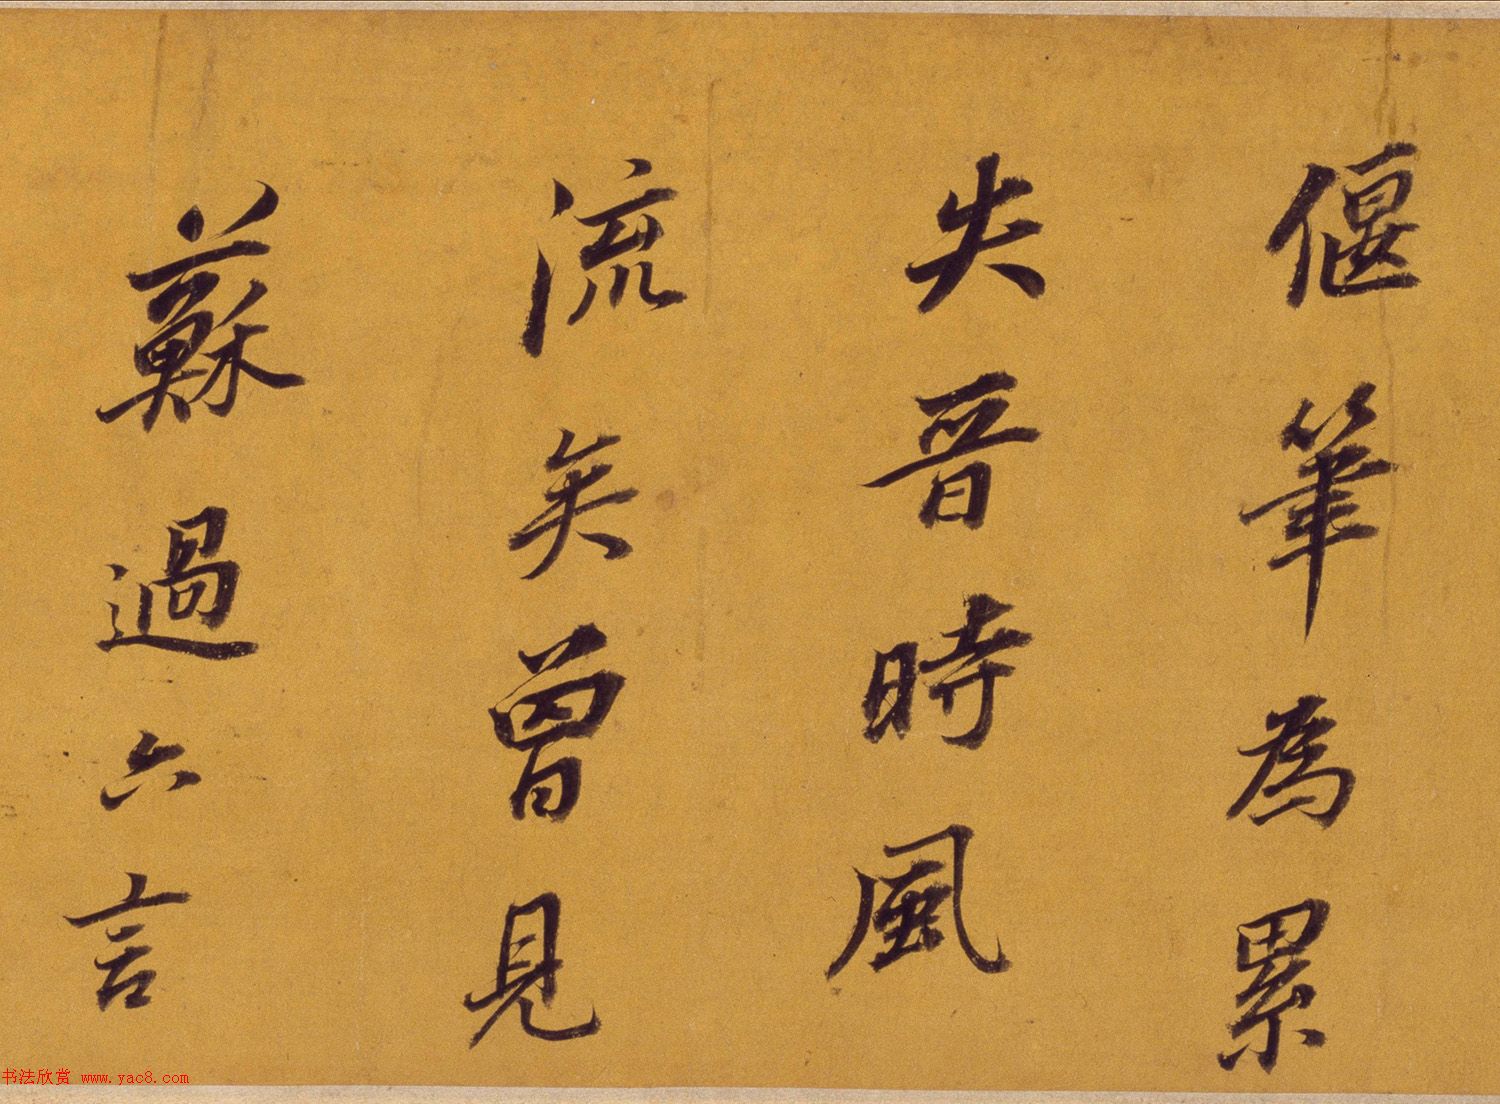 偃筆為累
失晉時風
流矣曾見
蘇過六言
书法欣赏 www.yac8.com